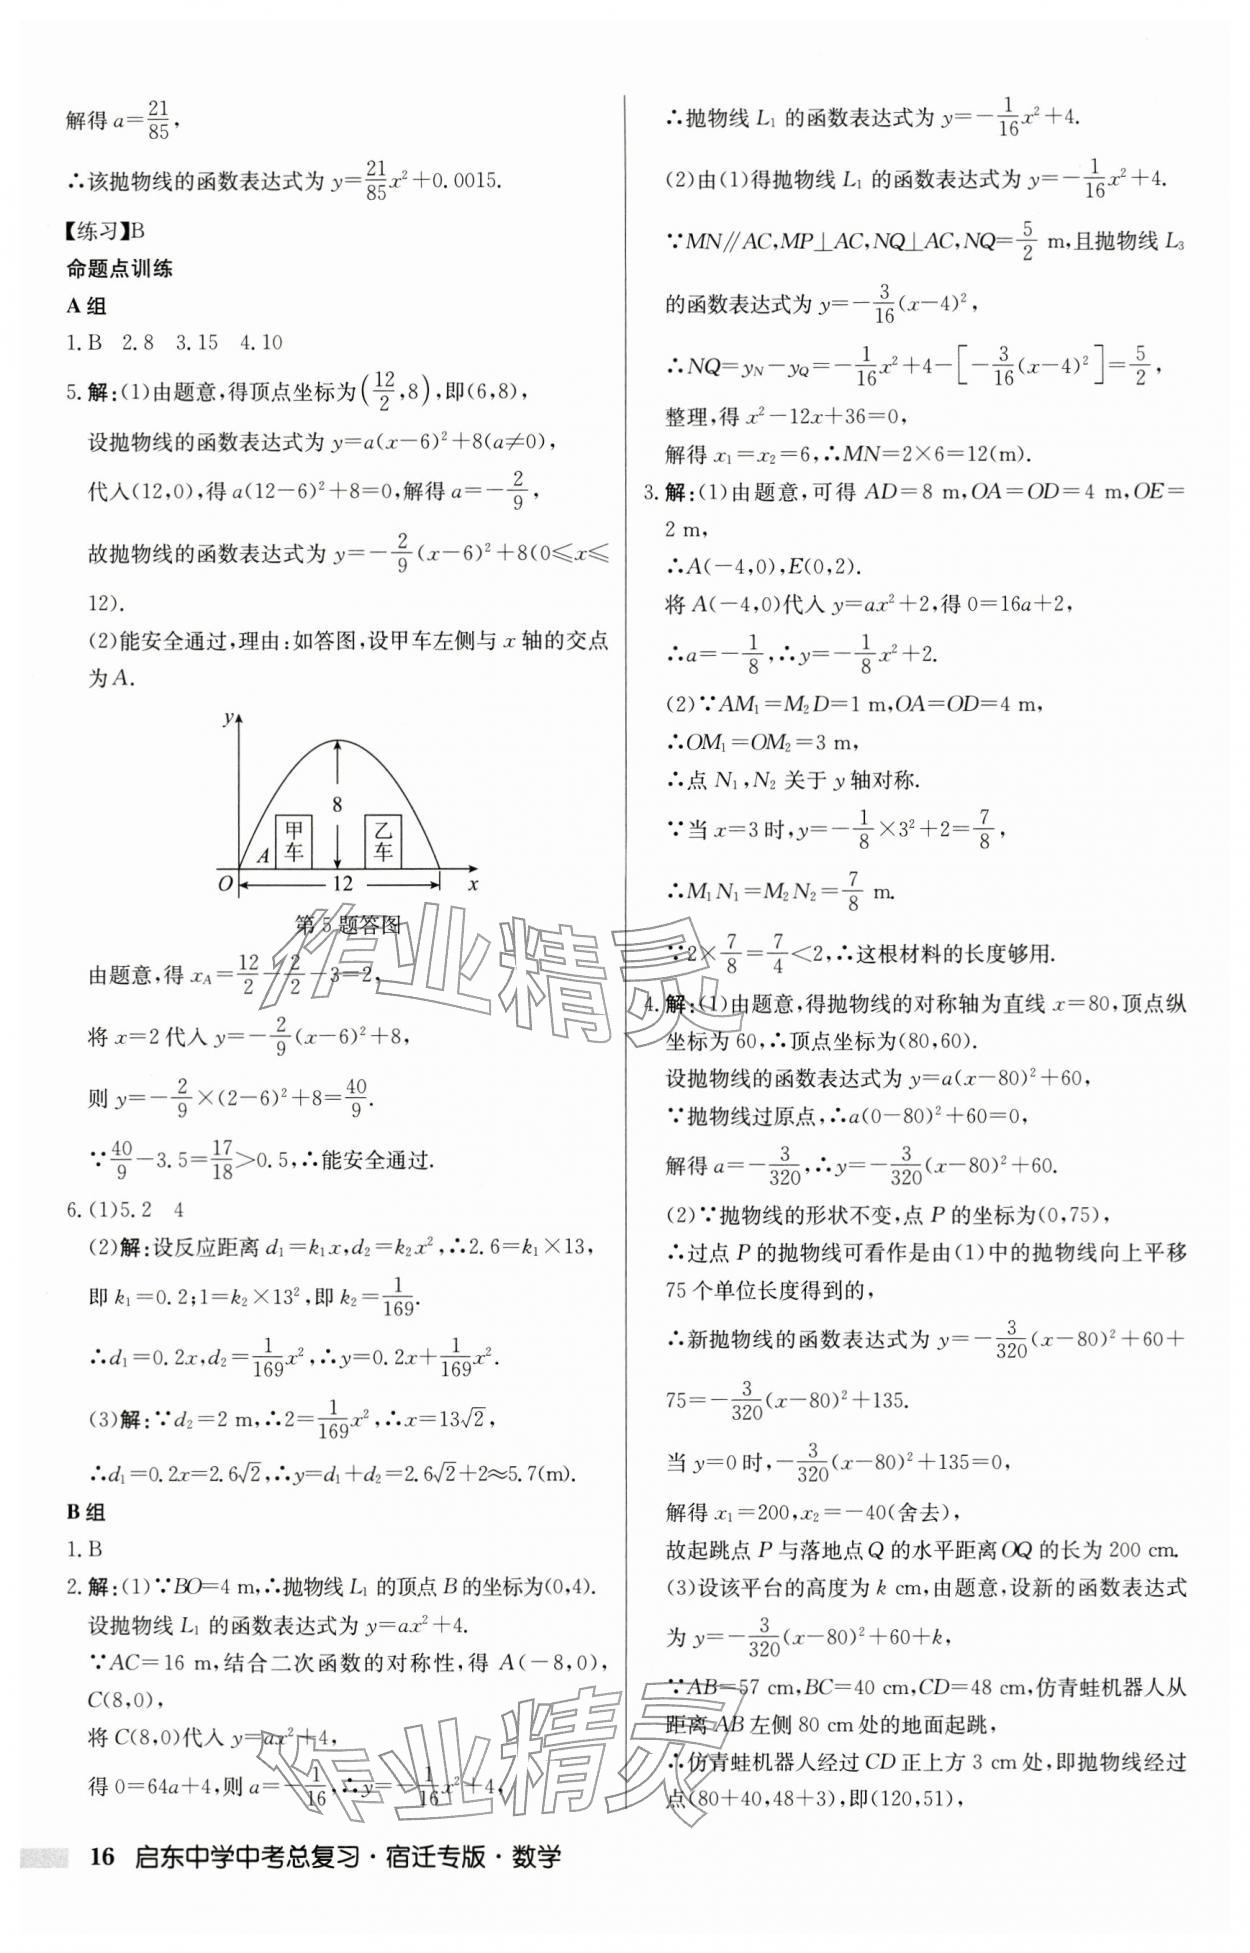 解得 a=21/85,
∴该抛物线的函数表达式为 y=21/85x²+0.0015.
【练习】B
命题点训练
A 组
1.B 2.8 3.15 4.10
5.解:(1)由题意,得顶点坐标为(12/2,8),即(6,8),
设抛物线的函数表达式为 y=a(x-6)²+8(a≠0),
代入(12,0),得 a(12-6)²+8=0,解得 a=-2/9,
故抛物线的函数表达式为 y=-2/9(x-6)²+8(0≤x≤
12).
(2)能安全通过,理由:如答图,设甲车左侧与 x 轴的交点
为 A.
y
8
甲车
乙车
A
O
12
x
第 5 题答图
由题意,得 x_A=12/2-2/2-3=2,
将 x=2 代入 y=-2/9(x-6)²+8,
则 y=-2/9×(2-6)²+8=40/9.
∵40/9-3.5=17/18>0.5,∴能安全通过.
6.(1)5.2 4
(2)解:设反应距离 d₁=k₁x,d₂=k₂x²,∴2.6=k₁×13,
即 k₁=0.2;1=k₂×13²,即 k₂=1/169.
∴d₁=0.2x,d₂=1/169x²,∴y=0.2x+1/169x².
(3)解:∵d₂=2 m,∴2=1/169x²,∴x=13√2,
∴d₁=0.2x=2.6√2,∴y=d₁+d₂=2.6√2+2≈5.7(m).
B 组
1.B
2.解:(1)∵BO=4 m,∴抛物线 L₁ 的顶点 B 的坐标为(0,4).
设抛物线 L₁ 的函数表达式为 y=ax²+4.
∵AC=16 m,结合二次函数的对称性,得 A(-8,0),
C(8,0),
将 C(8,0)代入 y=ax²+4,
得 0=64a+4,则 a=-1/16,∴y=-1/16x²+4,
∴抛物线 L₁ 的函数表达式为 y=-1/16x²+4.
(2)由(1)得抛物线 L₁ 的函数表达式为 y=-1/16x²+4.
∵MN∥AC,MP⊥AC,NQ⊥AC,NQ=5/2 m,且抛物线 L₃
的函数表达式为 y=-3/16(x-4)²,
∴NQ=y_N-y_Q=-1/16x²+4-[-3/16(x-4)²]=5/2,
整理,得 x²-12x+36=0,
解得 x₁=x₂=6,∴MN=2×6=12(m).
3.解:(1)由题意,可得 AD=8 m,OA=OD=4 m,OE=
2 m,
∴A(-4,0),E(0,2).
将 A(-4,0)代入 y=ax²+2,得 0=16a+2,
∴a=-1/8,∴y=-1/8x²+2.
(2)∵AM₁=M₂D=1 m,OA=OD=4 m,
∴OM₁=OM₂=3 m,
∴点 N₁,N₂ 关于 y 轴对称.
∵当 x=3 时,y=-1/8×3²+2=7/8,
∴M₁N₁=M₂N₂=7/8 m.
∵2×7/8=7/4<2,∴这根材料的长度够用.
4.解:(1)由题意,得抛物线的对称轴为直线 x=80,顶点纵
坐标为 60,∴顶点坐标为(80,60).
设抛物线的函数表达式为 y=a(x-80)²+60,
∵抛物线过原点,∴a(0-80)²+60=0,
解得 a=-3/320,∴y=-3/320(x-80)²+60.
(2)∵抛物线的形状不变,点 P 的坐标为(0,75),
∴过点 P 的抛物线可看作是由(1)中的抛物线向上平移
75 个单位长度得到的,
∴新抛物线的函数表达式为 y=-3/320(x-80)²+60+
75=-3/320(x-80)²+135.
当 y=0 时,-3/320(x-80)²+135=0,
解得 x₁=200,x₂=-40(舍去),
故起跳点 P 与落地点 Q 的水平距离 OQ 的长为 200 cm.
(3)设该平台的高度为 k cm,由题意,设新的函数表达式
为 y=-3/320(x-80)²+60+k,
∵AB=57 cm,BC=40 cm,CD=48 cm,仿青蛙机器人从
距离 AB 左侧 80 cm 处的地面起跳,
∴仿青蛙机器人经过 CD 正上方 3 cm 处,即抛物线经过
点(80+40,48+3),即(120,51),
16 启东中学中考总复习·宿迁专版·数学
作业精灵
作业精灵